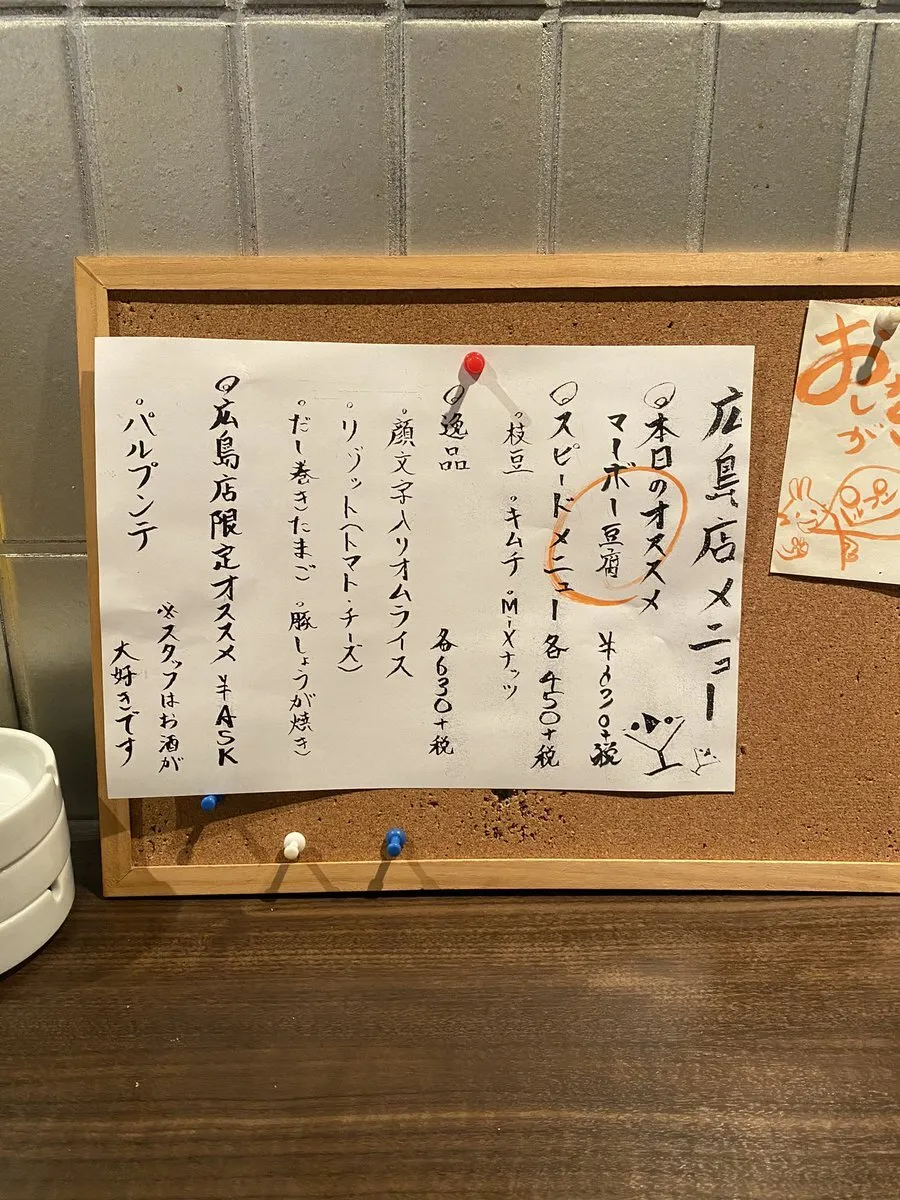 広島店メニュー
◎本日のオススメ
マーボー豆腐 ¥630+税
◎スピードメニュー 各450+税
○枝豆 ○キムチ ○M-Xナッツ
◎逸品 各630+税
○顔文字入りオムライス
○リゾット(トマト・チーズ)
○だし巻きたまご ○豚しょうが焼き
◎広島店限定オススメ ¥ASK
○パルプンテ
※スタッフはお酒が
大好きです